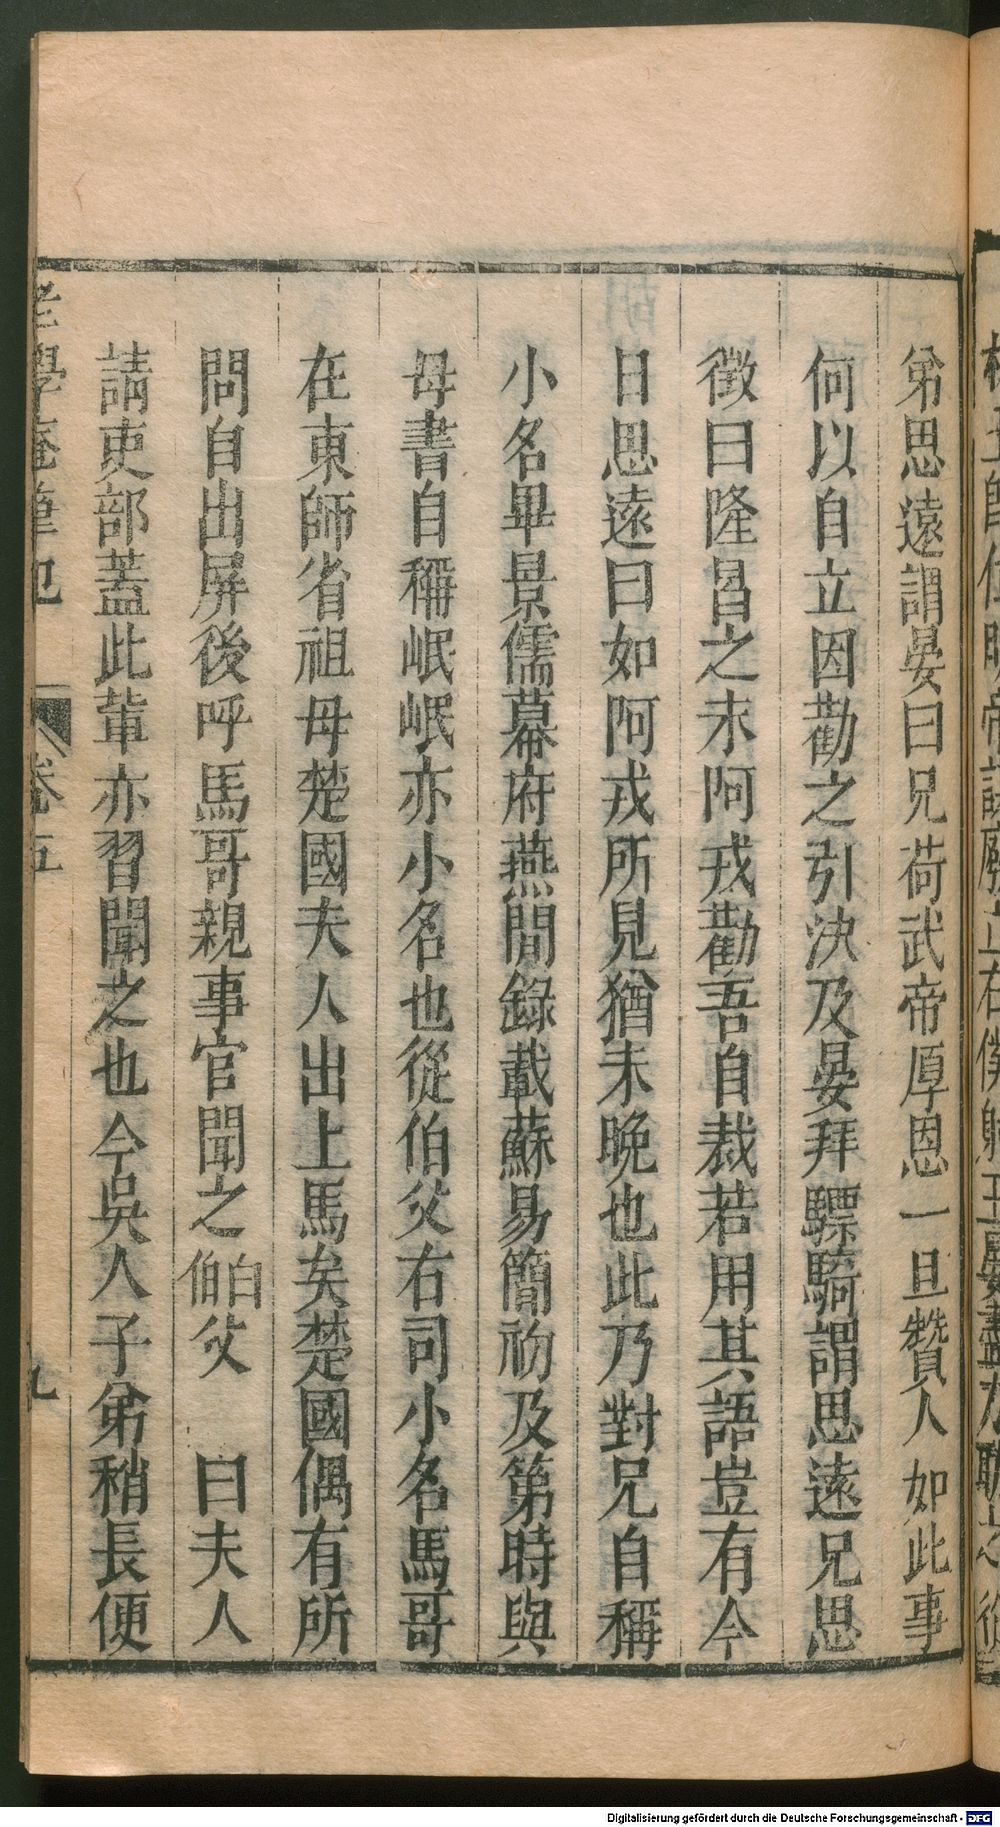 弟思遠謂晏曰兄荷武帝厚恩一旦贊人如此事
何以自立因勸之引決及晏拜驃騎謂思遠兄思
徵曰隆昌之末阿戎勸吾自裁若用其語豈有今
日思遠曰如阿戎所見猶未晚也此乃對兄自稱
小名畢景儒幕府燕閒錄載蘇易簡初及第時與
母書自稱岷岷亦小名也從伯父右司小名馬哥
在東師省祖母楚國夫人出上馬矣楚國偶有所
問自出屏後呼馬哥親事官聞之伯父 曰夫人
請吏部蓋此輩亦習聞之也今吳人子弟稍長便
老學庵筆記 卷五 九
Digitalisierung gefördert durch die Deutsche Forschungsgemeinschaft - DFG